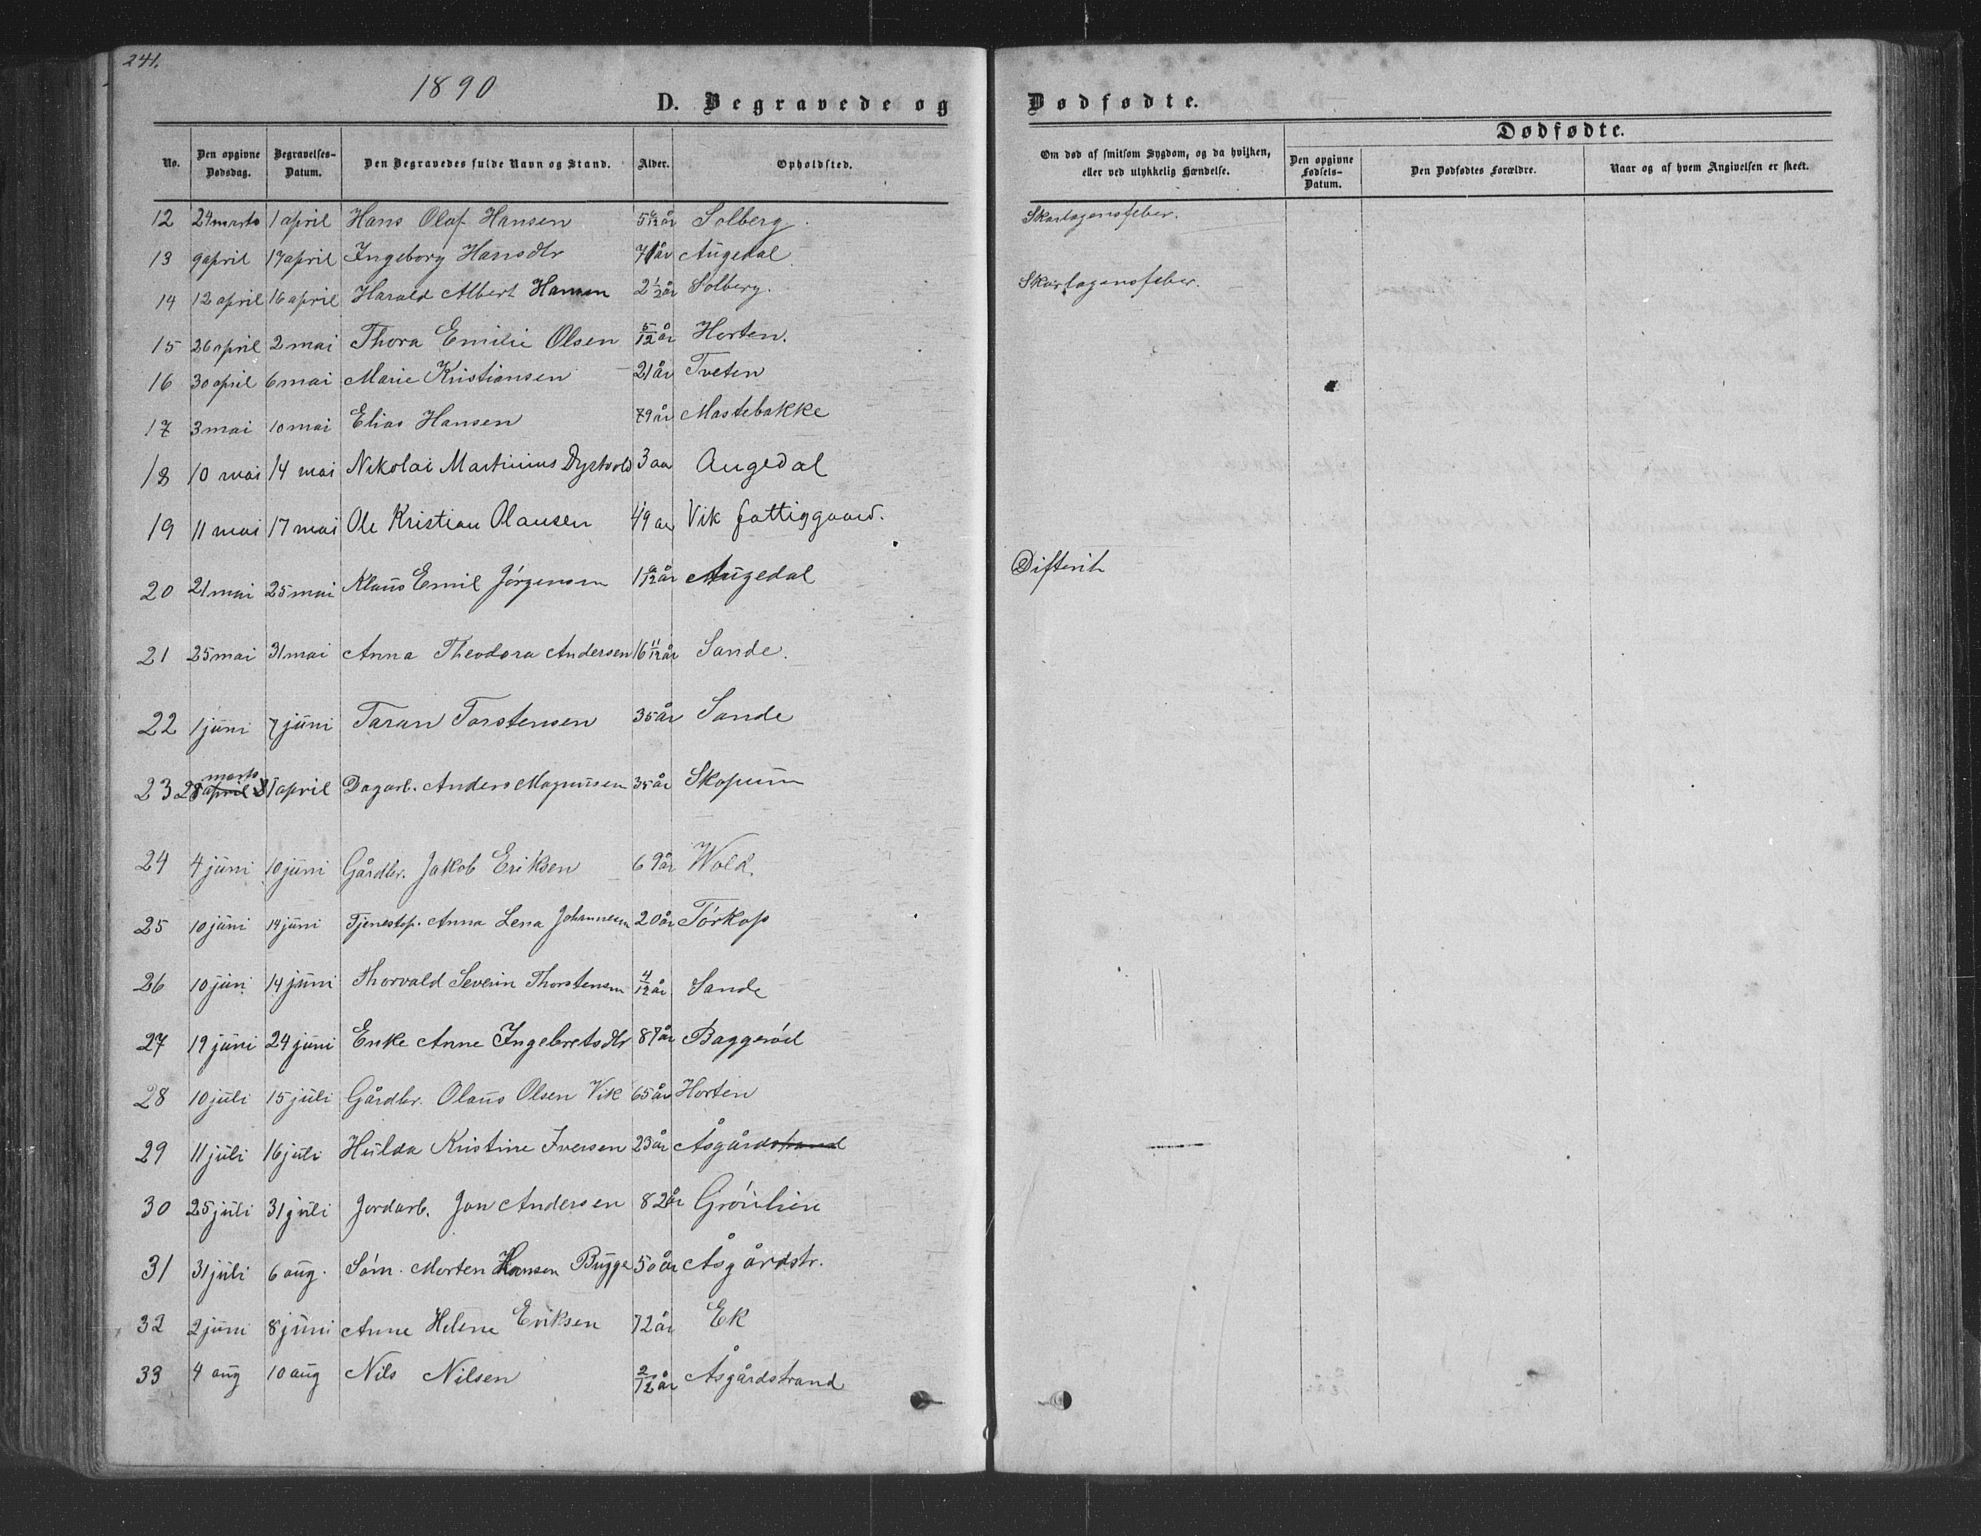 241.
1890
D. Begravede og Dødfødte.
Dødfødte.
No. Den opgivne Dødsdag. Begravelses-Datum. Den Begravedes fulde Navn og Stand. Alder. Opholdsted. Om død af smitsom Sygdom, og da hvilken, eller ved ulykkelig Hændelse. Den opgivne Fødsels-Datum. Den Dødfødtes Forældre. Naar og af hvem Angivelsen er skeet.
12 24 marts 1 april Hans Olaf Hansen Solberg. Skarlagensfeber.
13 9 april 17 april Ingeborg Hansdtr 71 år Augedal
14 12 april 16 april Harald Albert Hansen 2 1/2 år Solberg. Skarlagensfeber.
15 26 april 2 mai Thora Emilie Olsen 5/12 år Horten.
16 30 april 6 mai Marie Kristiansen 21 år Tveten
17 3 mai 10 mai Elias Hansen 79 år Mastebakke
18 10 mai 14 mai Nikolai Martinius Dystvold 3 aar Augedal
19 11 mai 17 mai Ole Kristian Olausen 49 aar Vik fattiggaard.
20 21 mai 25 mai Klaus Emil Jörgensen Augedal Difterit
21 25 mai 31 mai Anna Theodora Andersen 16 11/12 år Sande.
22 1 juni 7 juni Taran Torstensen 35 år Sande
23 28 marts april Dagarb. Anders Magnusen 35 år Skopum
24 4 juni 10 juni Gårdbr. Jakob Eriksen 69 år Wold.
25 10 juni 14 juni Tjenestep. Anna Lena Johannesen 20 år Törkop
26 10 juni 14 juni Thorvald Severin Thorstensen 4/12 år Sande
27 19 juni 24 juni Enke Anne Ingebretsdtr 87 år Baggeröd
28 10 juli 15 juli Gårdbr. Olaus Olsen Vik 65 år Horten
29 11 juli 16 juli Hulda Kristine Iversen 23 år Åsgårdstrand
30 25 juli 31 juli Jordarb. Jan Andersen 82 år Grönlien
31 31 juli 6 aug. Söm. Morten Hansen Bugge 50 år Åsgårdstr.
32 2 juni 8 juni Anne Helene Eriksen 72 år Ek
33 4 aug 10 aug Nils Nilsen 2/12 år Åsgårdstrand